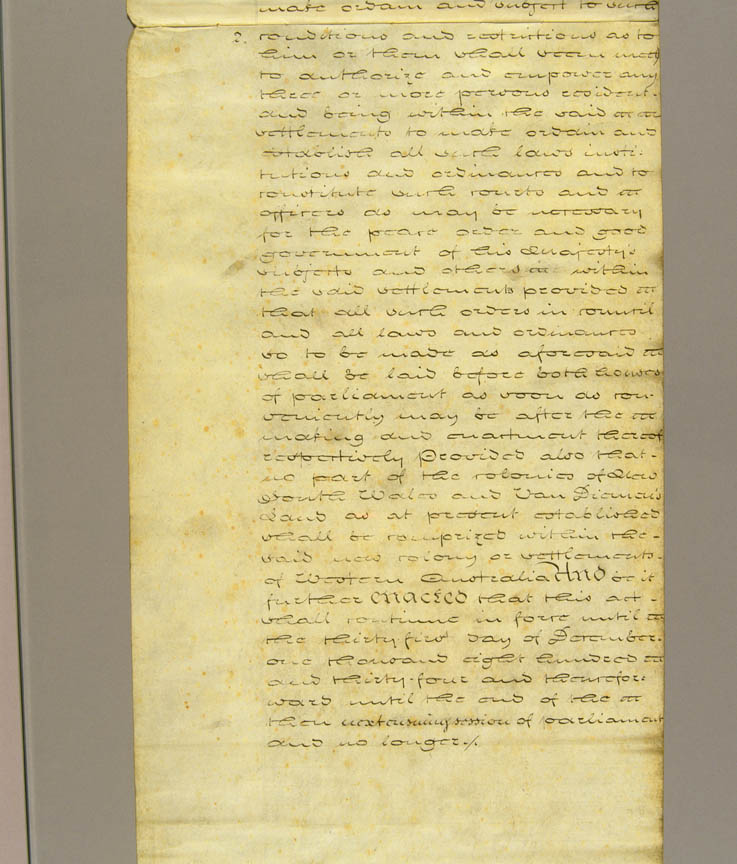 make ordain and subject to such
2. conditions and restrictions as to
him or them shall seem meet
to authorize and empower any
three or more persons resident
and being within the said
settlements to make ordain and
establish all such laws insti-
tutions and ordinances and to
constitute such courts and
officers as may be necessary
for the peace order and good
government of his Majesty's
subjects and others within
the said settlements provided
that all such orders in council
and all laws and ordinances
so to be made as aforesaid
shall be laid before both houses
of parliament as soon as con-
veniently may be after the
making and enactment thereof
respectively Provided also that-
no part of the colonies of New
South Wales and Van Diemen's
Land as at present established
shall be comprized within the-
said new colony or settlements.
of Western Australia And be it
further enacted that this act-
shall continue in force until
the thirty first day of December.
one thousand eight hundred
and thirty-four and therefore
ward until the end of the
then next ensuing session of parliament
and no longer./.